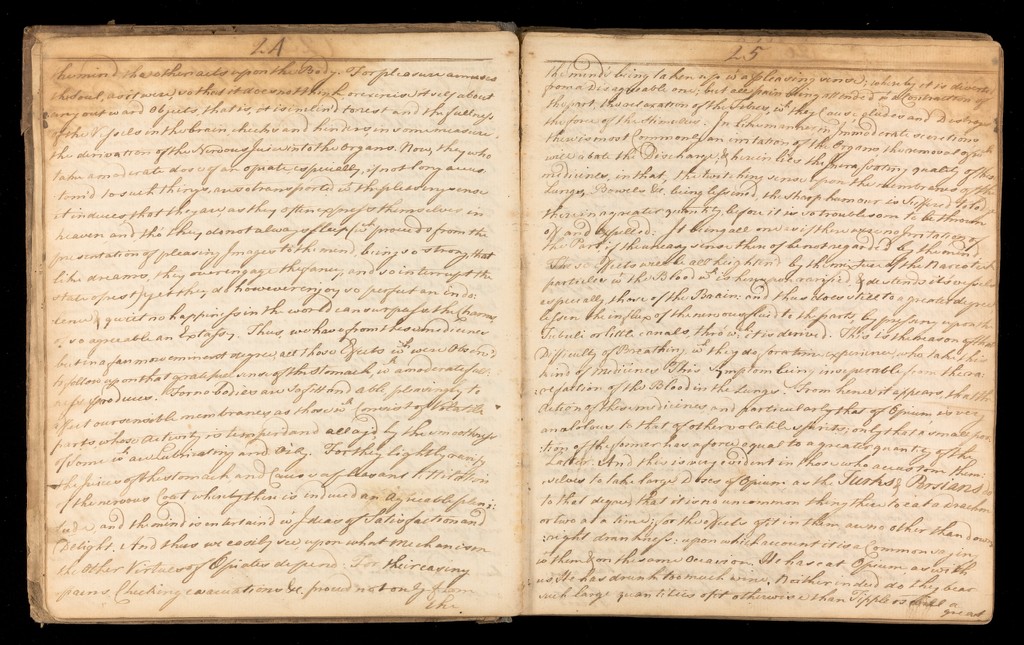 24
the mind, the other acts upon the Body. For pleasure amuses
the soul, as it were so that it does not think or exercise it self about
any outward Objects, that is, it is inclin'd to rest and the fullness
of the Vessels in the brain, checks and hinders in some measure
the derivation of the Nervous Juice into the Organs. Now, they who
take a moderate dose of an opiate especially if not long accus
tom'd to such things, are so transported wth the pleasing sense
it induces that they are, as they often express themselves in
heaven and tho' they do not always sleep (wch proceeds from the
presentation of pleasing Images to the mind being so strong, that
like dreams, they over engage the fancy, and so interrupt the
state of rest) yet they do however enjoy so perfect an indo:
lence & quiet no happiness in the world can surpass the Charms
of so agreeable an Extasy. Thus we have from these medicines
but in a far more eminent degree, all those Effects wch were Observ'd
to follow upon that grateful sense of the Stomach wch a moderate ful:
ness produces. For no bodies are so fit and able pleasingly to
affect our sensible membranes as those wch Consist of Volatile
parts whose Activity is temper'd and allay'd by the smoothness
of some wch are Lubricating and Oily. For they lightly rarify
the juices of the stomach and Cause a pleasant titillation
of the nervous Coat whereby there is induced an Agreeable pleni:
tude and the mind is entertain'd wth Ideas of Satisfaction and
Delight. And thus we easily see upon what Mechanism
the Other Virtues of Opiates depend: For their easing
pains, Checking evacuations &c. proceed not only from
the
25
the mind's being taken up wth a pleasing sense; whereby it is diverted
from a disagreeable one; but all pain being attended wth a Contraction of
the part, the relaxation of the Fibres, wch they Cause eludes and Destroys
the force of the Stimulus: In Like manner in Immoderate secretions
there is most Commonly an irritation of the Organs the removal of wch
will abate the Discharge; & herein lies the incrassating quality of these
medicines, in that, the twitching sense upon the membranes of the
Lungs, Bowels &c. being lessen'd, the sharp humour is suffer'd to lod
there in a greater quantity, before it is so troublesom to be thrown
off and expelled: It being all one as if there were no Irritation of
the Part, if the uneasy sense thereof be not regarded by the mind.
These effects will be all heighten'd by the mixture of the Narcotick
particles wth the Blood wch is hereupon rarified & distends its vessels
especially those of the Brain: and thus does still to a greater degree
lessen the influx of the nervous fluid to the parts by pressing upon the
Tubuli or little canals thro' wch it is derived. This is the reason of that
Difficulty of Breathing wch they do for a time experience who take this
kind of medicines This Symptom being inseparable from the rar
efaction of the Blood in the Lungs. From hence it appears that the
Action of these medicines and particularly that of Opium is very
analogous to that of other volatile spirits; only that a small por
tion of the former has a force equal to a greater quantity of the
Latter. And this is very evident in those who accustom them:
selves to take large Doses of Opium as the Turks & Persians do
to that degree that it is no uncommon thing there to eat a drachm
or two at a time; for the effects of it in them are no other than down
:right drunkness: upon which account it is a Common saying
wth them & on the same Occasion He has eat Opium, as with
us, He has drunk too much wine. Neither indeed do they bear
such large quantities of it otherwise than Tipplers will a
great